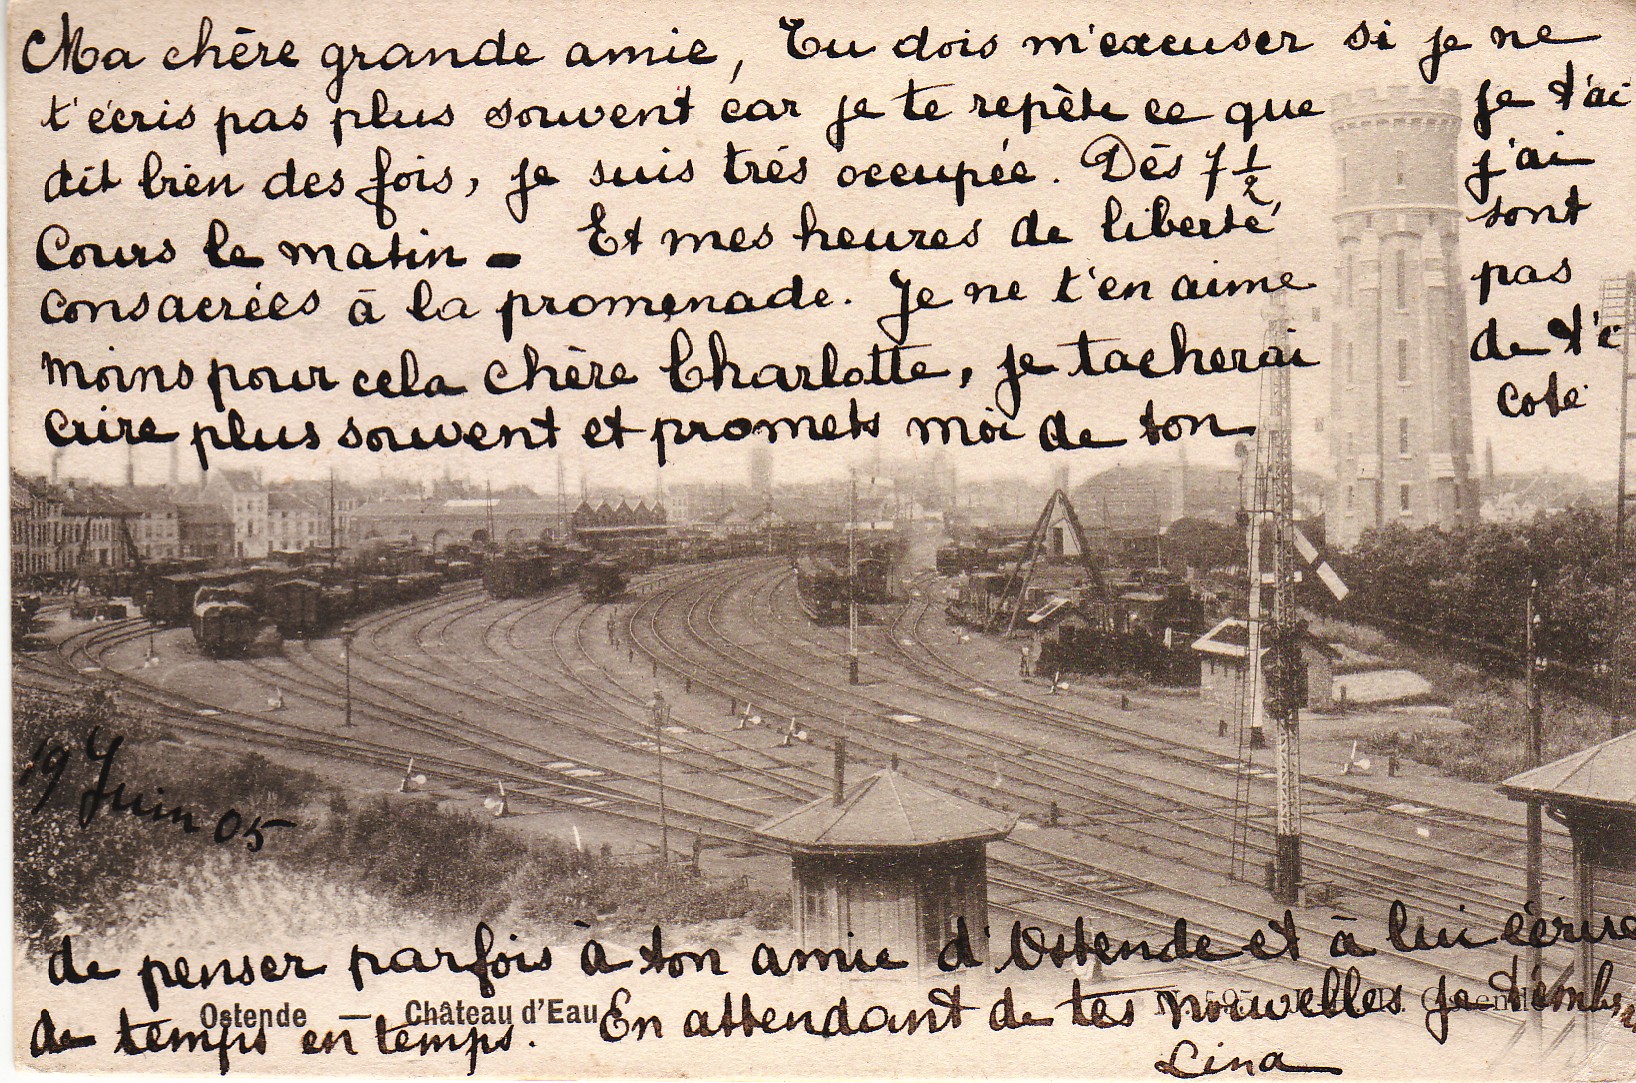 Ma chère grande amie, Tu dois m'excuser si je ne
t'écris pas plus souvent car je te repète ce que je t'ai
dit bien des fois, je suis très occupée. Dès 7 1/2 j'ai
Cours le matin - Et mes heures de liberté sont
consacrées à la promenade. Je ne t'en aime pas
moins pour cela chère Charlotte, je tacherai de t'é
crire plus souvent et promets moi de ton coté
19 Juin 05
de penser parfois à ton amie d'Ostende et à lui écrire
de temps en temps. En attendant de tes nouvelles je t'embr
Ostende — Château d'Eau
Lina